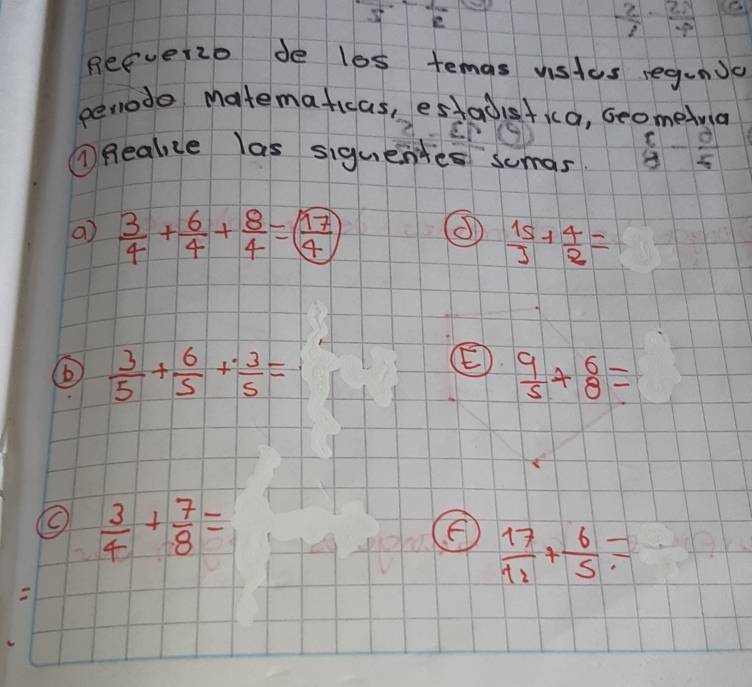 Refuerzo de los temas vistos segundo
periodo Matematicas, estadistica, Geometria
① Realice las siguientes sumas.
a) 3/4 + 6/4 + 8/4 = 17/4
b) 3/5 + 6/5 + 3/5 =
c) 3/4 + 7/8 =
d) 15/3 + 4/2 =
E) 9/5 + 6/8 =
F) 17/12 + 6/5 =